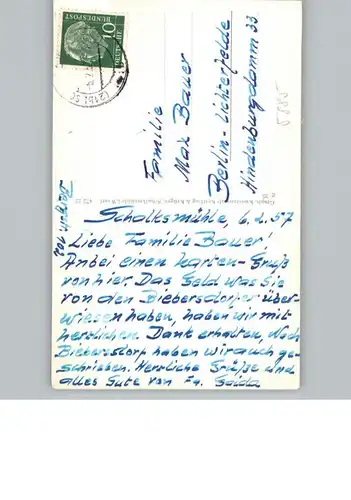 10
DEUTSCHE
BUNDESPOST
(21b) SC
Familie
Max Bauer
Berlin-Lichterfelde
Hindenburgdamm 33
Schalksmühle, 6.2.57
Liebe Familie Bauer!
Anbei einen Karten-Gruß
von hier. Das Geld was Sie
von den Biebersdorfer über-
wiesen haben, haben wir mit
herzlichen Dank erhalten, Nach
Biebersdorf haben wir auch ge-
schrieben. Herzliche Grüße und
alles Gute von Fa.